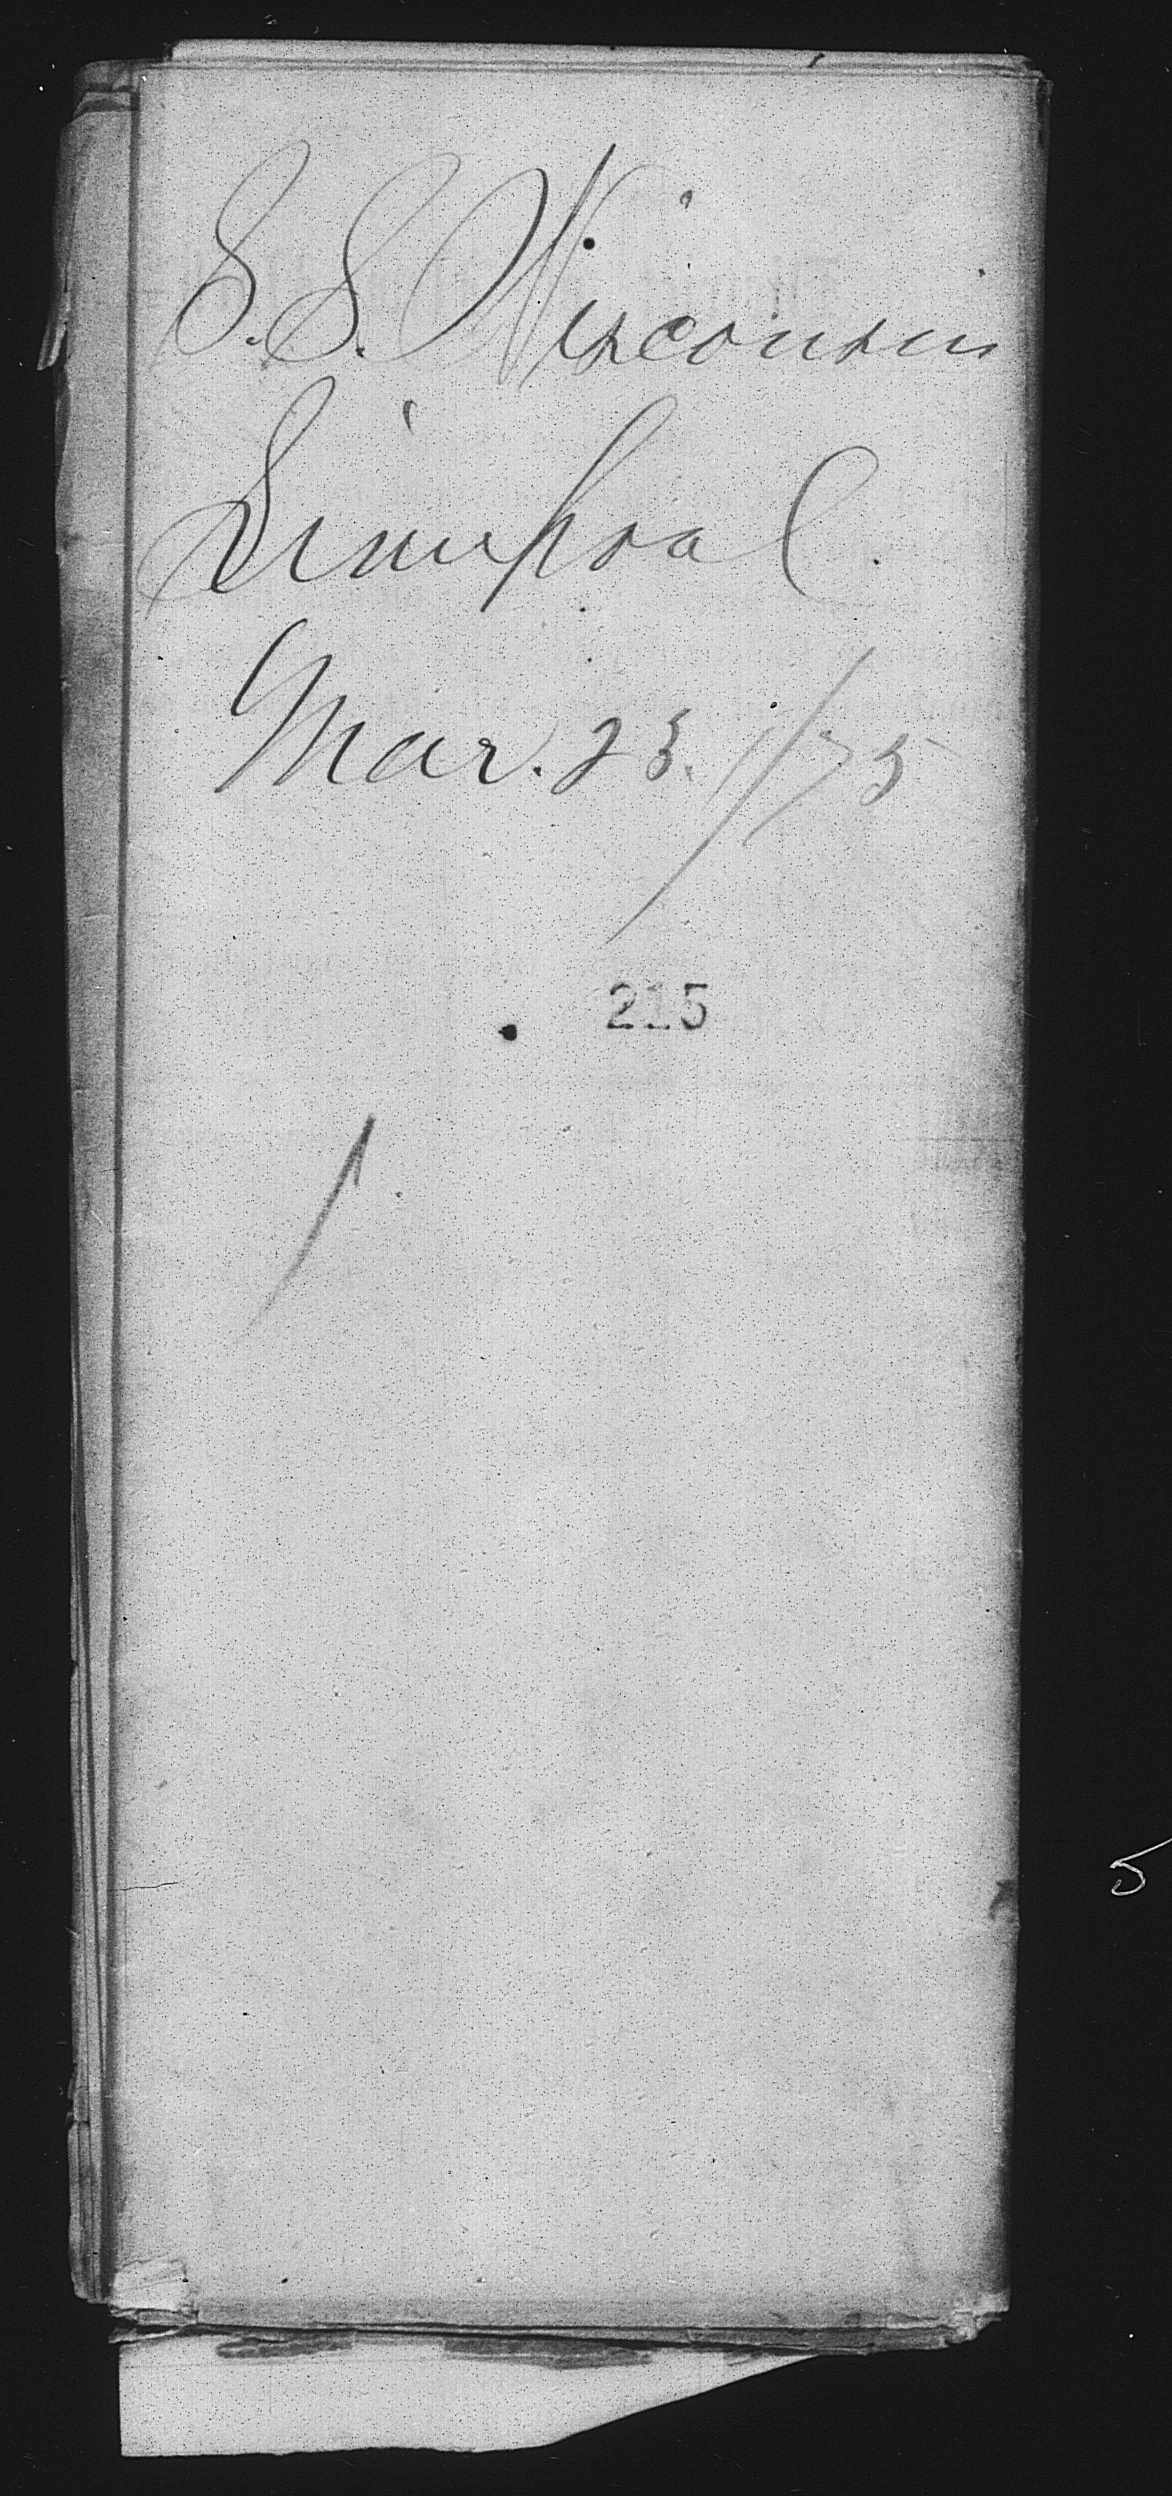 S. S. Wisconsin
Liverpool.
Mar. 23. /75
215
1
5